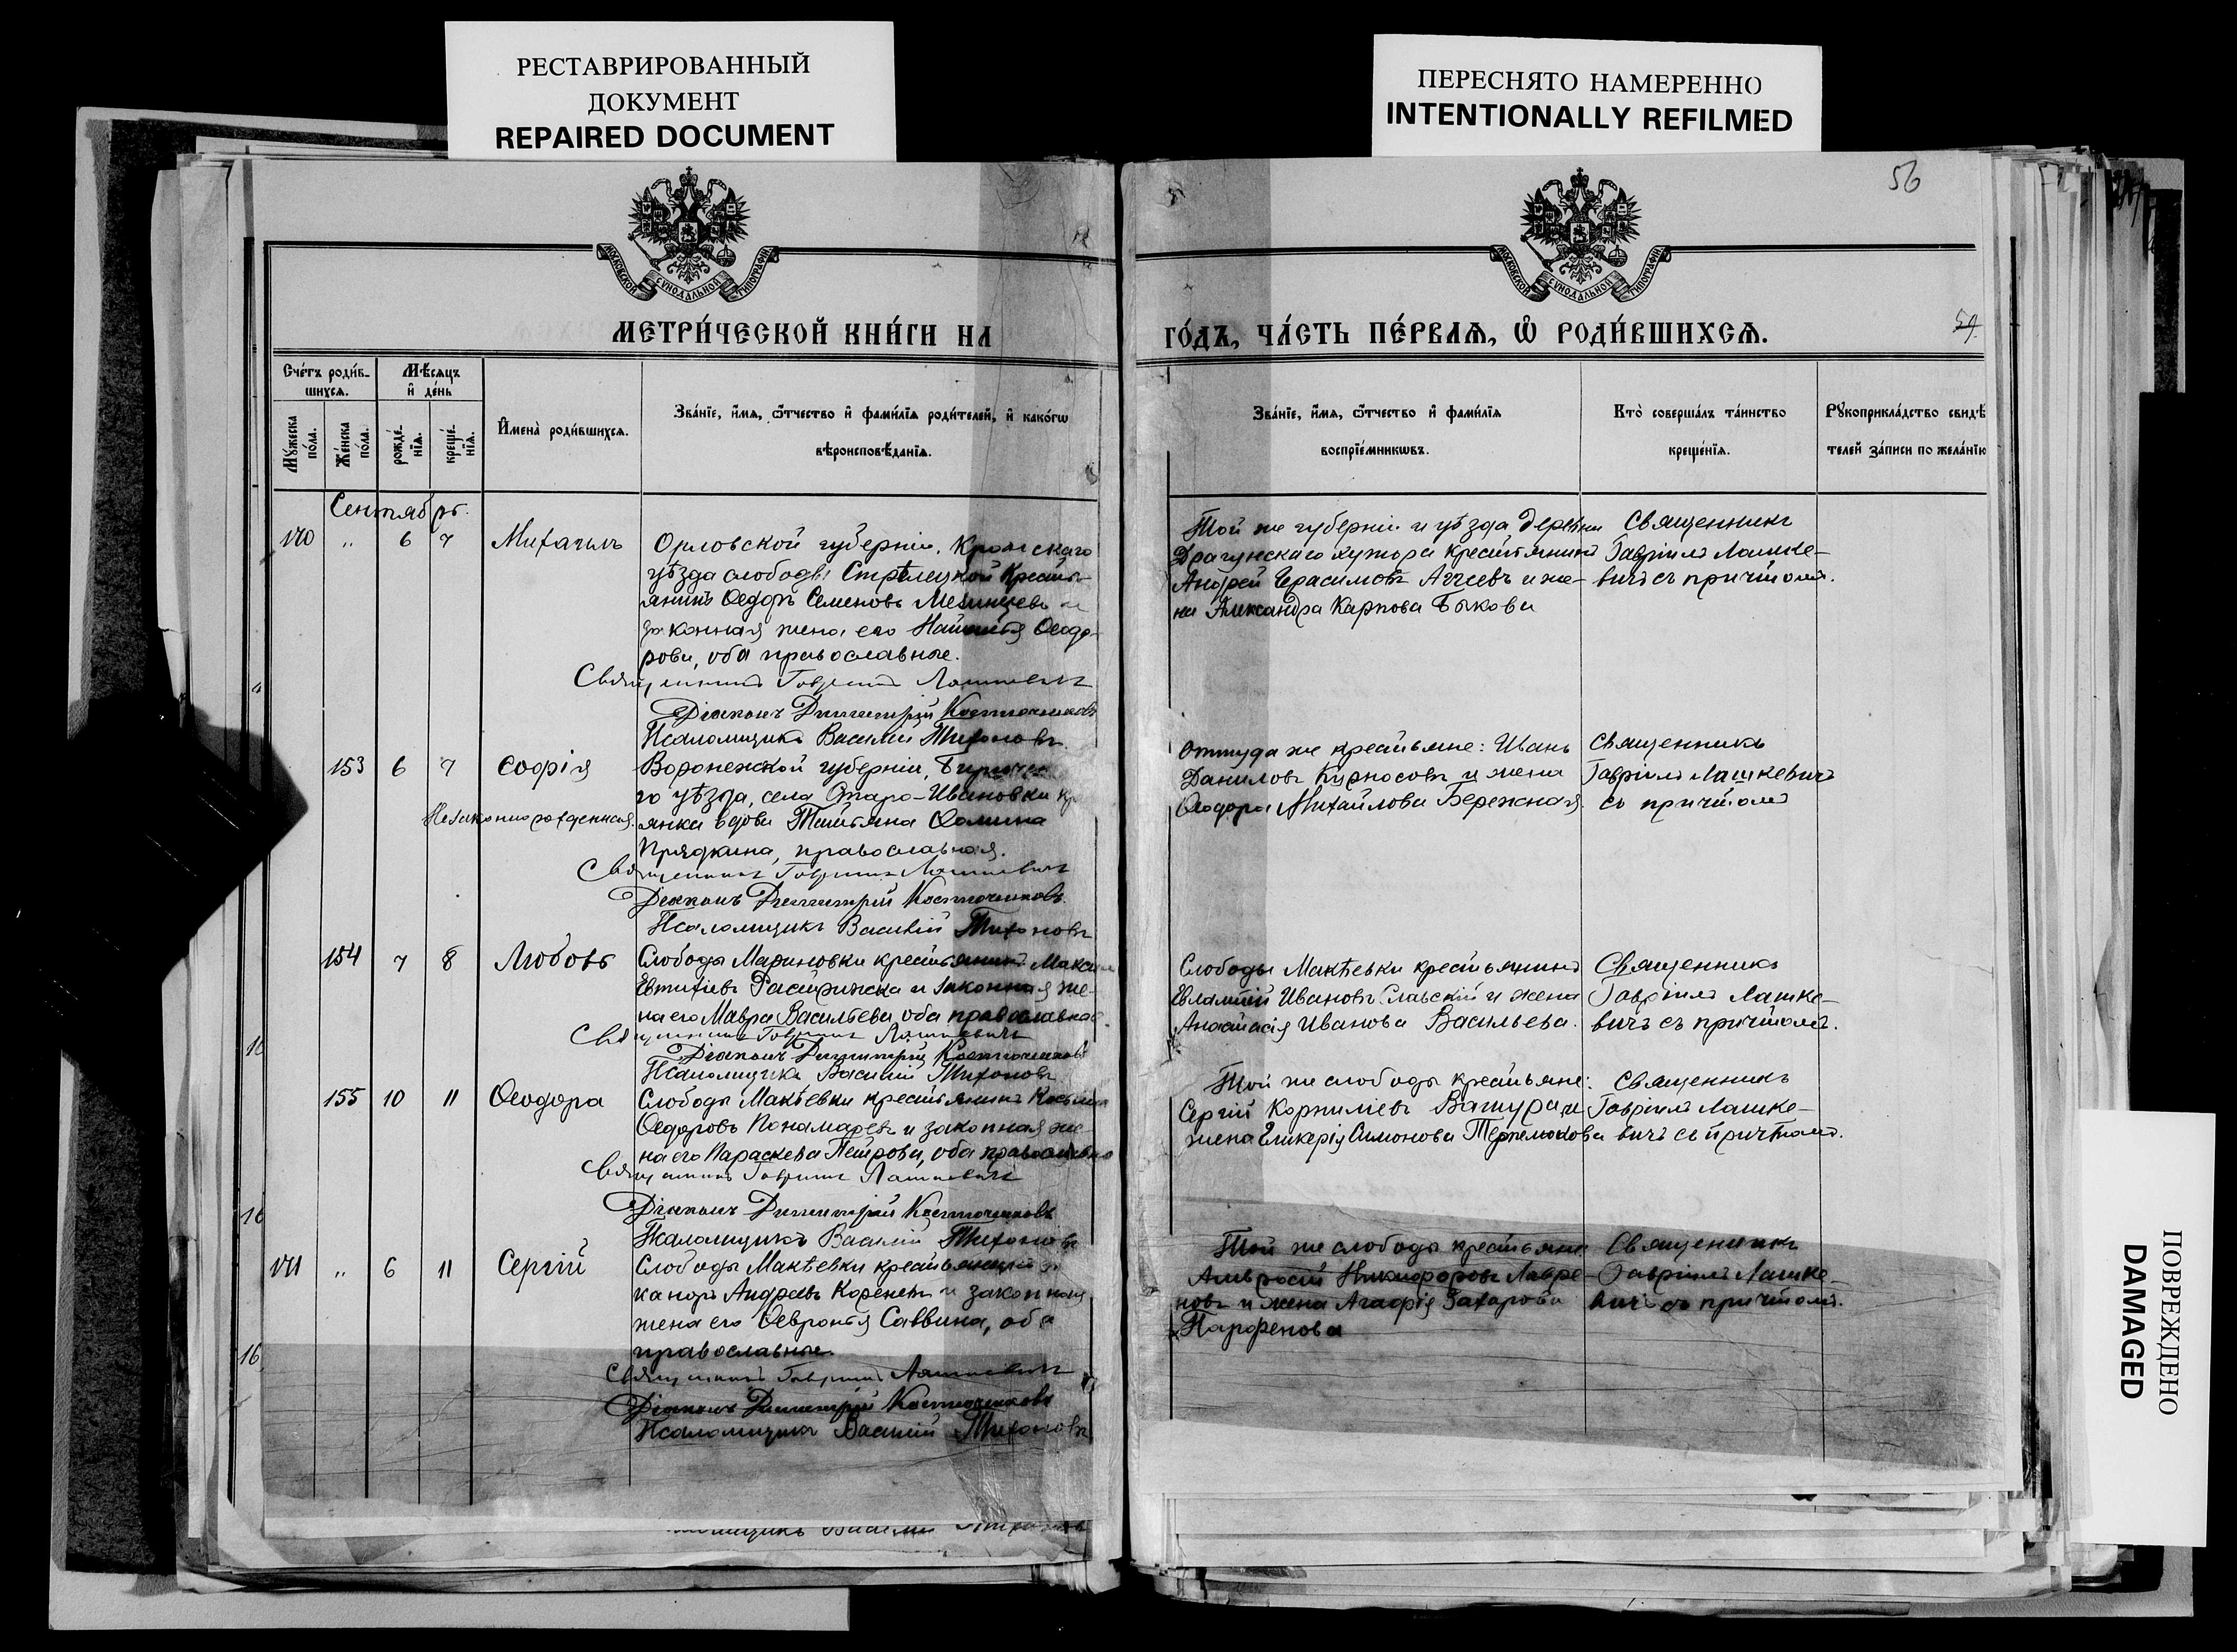 РЕСТАВРИРОВАННЫЙ
ДОКУМЕНТ
REPAIRED DOCUMENT
ПЕРЕСНЯТО НАМЕРЕННО
INTENTIONALLY REFILMED
56
МОСКОВСКОЙ СѴНОДАЛЬНОЙ ТИПОГРАФІИ
МОСКОВСКОЙ СѴНОДАЛЬНОЙ ТИПОГРАФІИ
МЕТРИ́ЧЕСКОЙ КНИ́ГИ НА
ГО́ДЪ, ЧА́СТЬ ПЕ́РВАѦ, Ѡ҆ РОДИ́ВШИХСѦ.
54
Сче́тъ роди́в-
шихсѧ.
Мѣ́сѧцъ
и҆ де́нь
Мꙋ́жеска
по́ла.
Же́нска
по́ла.
рожде́-
нїѧ.
креще́-
нїѧ.
И҆мена̀ роди́вшихсѧ.
Зва́нїе, и҆́мѧ, ѻ҆́тчество и҆ фами́лїѧ роди́телей, и҆ како́гѡ
вѣроисповѣ́данїѧ.
Зва́нїе, и҆́мѧ, ѻ҆́тчество и҆ фами́лїѧ
воспрїе́мникѡвъ.
Кто̀ соверша́лъ та́инство
креще́нїѧ.
Рꙋкоприкла́дство свидѣ́
телей за́писи по жела́нїю
Сентябрь.
170 " 6 7 Михаилъ
Орловской губерніи, Кромскаго
уѣзда слободы Стрѣлецкой Кресть-
янинъ Ѳедоръ Семеновъ
законная жена его Наталія Ѳеодо-
рова, оба православные.
Священникъ Гавріилъ Лашкевичъ
Діаконъ Димитрій
Псаломщикъ Василій Тихоновъ
Той же губерніи и уѣзда деревни
Драгунскаго хутора крестьянинъ
Андрей Герасимовъ Агѣевъ и же-
на Александра Карпова Быкова
Священникъ
Гавріилъ Лашке-
вичъ съ причтомъ.
153 6 7 Софія
Незаконнорожденная.
Воронежской губерніи,
го уѣзда, села Старо-Ивановки кр
янка вдова Татьяна Ѳомина
Прядкина, православная.
Священникъ Гавріилъ Лашкевичъ
Діаконъ Димитрій
Псаломщикъ Василій Тихоновъ
Оттуда же крестьяне: Иванъ
Даниловъ Курносовъ и жена
Ѳеодора Михайлова Бережная.
Священникъ
Гавріилъ Лашкевичъ
съ причтомъ
154 7 8 Любовь
Слободы Мариновки крестьянинъ Макси
Евтихіевъ и законная же-
на его Мавра Васильева, оба православные.
Священникъ Гавріилъ Лашкевичъ
Діаконъ Димитрій
Псаломщикъ Василій Тихоновъ
Слободы Макѣевки крестьянинъ
Евлампій Ивановъ Славскій и жена
Анастасія Иванова Васильева.
Священникъ
Гавріилъ Лашке-
вичъ съ причтомъ.
155 10 11 Ѳеодора
Слободы Макѣевки крестьянинъ Косьма
Ѳедоровъ Пономаревъ и законная же-
на его Параскева Петрова, оба православно
Священникъ Гавріилъ Лашкевичъ
Діаконъ Димитрій
Псаломщикъ Василій Тихоновъ
Той же слободы крестьяне:
Сергій Корниліевъ Вашура и
жена Гликерія Симонова
Священникъ
Гавріилъ Лашке-
вичъ съ причтомъ.
171 " 6 11 Сергій
Слободы Макѣевки крестьянинъ
каноръ Андреевъ Кореневъ и законная
жена его Февронія Саввина, оба
православные.
Священникъ Гавріилъ Лашкевичъ
Діаконъ Димитрій
Псаломщикъ Василій Тихоновъ
Той же слободы крестьяне
Амвросій Никифоровъ Лавре-
новъ и жена Агафія Захарова
Парфенова
Священникъ
Гавріилъ Лашке-
вичъ съ причтомъ.
16
16
ПОВРЕЖДЕНО
DAMAGED